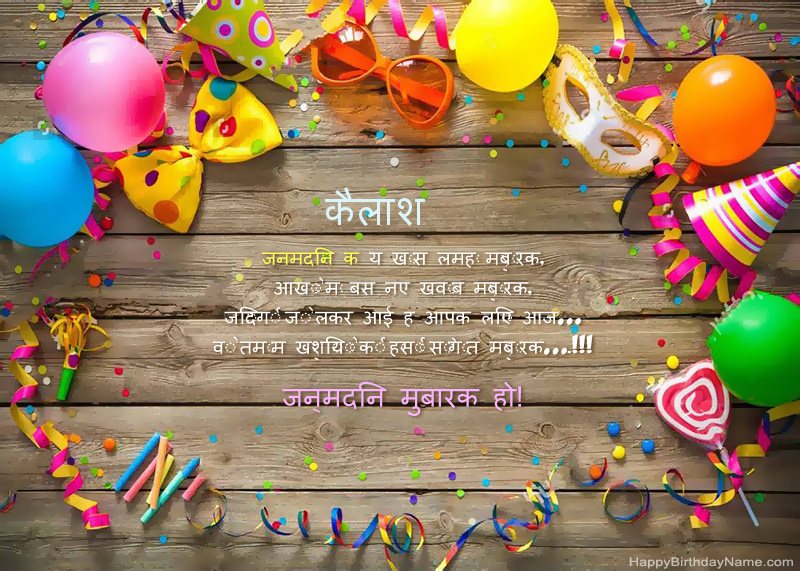 कैलाश
जनमदिन क य खास लमहा मुबारक,
आखों में बसे नए खवाब मुबारक,
जिंदगी जो लेकर आई ह आपके लिए आज...
वो तमाम खुशियों की हसीं सौगात मुबारक...!!!
जन्मदिन मुबारक हो!
HappyBirthdayName.com